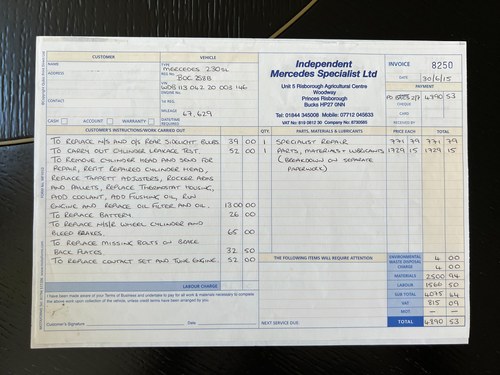 CUSTOMER
VEHICLE
NAME
ADDRESS
CONTACT
CASH
ACCOUNT
WARRANTY
TYPE MERCEDES 230SL
REG No. BOC 258B
VIN WDB 113 042 20 003 146
ENGINE No.
1st REG.
MILEAGE 67,629
DATE/TIME REQUIRED
Independent
Mercedes Specialist Ltd
Unit 5 Risborough Agricultural Centre
Woodway
Princes Risborough
Bucks HP27 0NN
Tel: 01844 345008 Mobile: 07712 045633
VAT No: 819 0812 30 Company No: 8730985
INVOICE 8250
DATE 30/6/15
PAYMENT
4390 53
CHEQUE
CARD
CUSTOMER'S INSTRUCTIONS/WORK CARRIED OUT
TO REPLACE N/S AND O/S REAR SIDELIGHT BULBS 39 00
TO CARRY OUT CYLINDER LEAKAGE TEST. 52 00
TO REMOVE CYLINDER HEAD AND SEND FOR
REPAIR, REFIT REPAIRED CYLINDER HEAD,
REPLACE TAPPETT ADJUSTERS, ROCKER ARMS
AND PALLETS, REPLACE THERMOSTAT HOUSING,
ADD COOLANT, ADD FLUSHING OIL, RUN
ENGINE AND REPLACE OIL FILTER AND OIL. 1300 00
TO REPLACE BATTERY 26 00
TO REPLACE N/S/R WHEEL CYLINDER AND
BLEED BRAKES. 65 00
TO REPLACE MISSING BOLTS ON BRAKE
BACK PLATES. 32 50
TO REPLACE CONTACT SET AND TUNE ENGINE. 52 00
LABOUR CHARGE
QTY. PARTS, MATERIALS & LUBRICANTS PRICE EACH TOTAL
1 SPECIALIST REPAIR 771 79 771 79
1 PARTS, MATERIALS + LUBRICANTS 1729 15 1729 15
(BREAKDOWN ON SEPARATE
PAPERWORK)
THE FOLLOWING ITEMS WILL REQUIRE ATTENTION
ENVIRONMENTAL WASTE DISPOSAL CHARGE 4 00
4 00
MATERIALS 2500 94
LABOUR 1566 50
SUB TOTAL 4075 44
VAT 815 09
MOT — —
TOTAL 4890 53
I have been made aware of your Terms of Business and undertake to pay for all work & materials necessary to complete the above work upon collection of the vehicle, unless credit terms have been arranged by you.
Customer's Signature
Date
NEXT SERVICE DUE